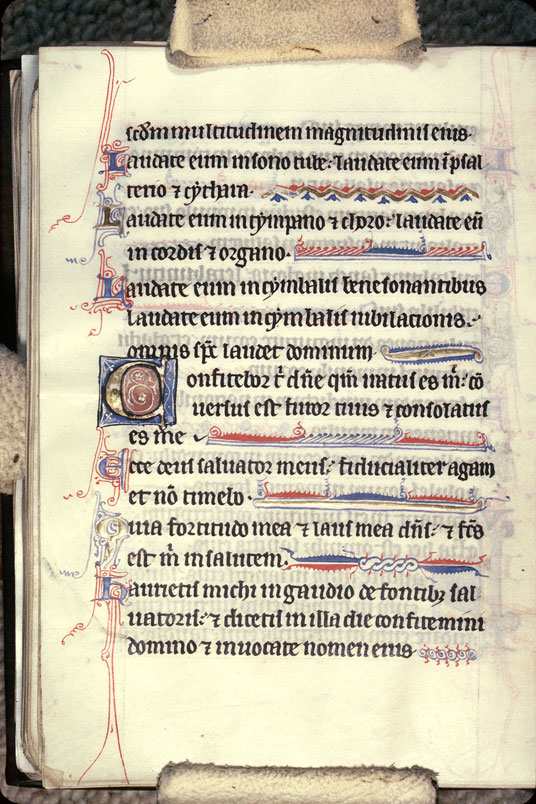 scđm multitudinem magnitudinis eius.
Laudate eum in sono tube: laudate eum ī psal
terio ⁊ cythara.
Laudate eum in tympano ⁊ choro: laudate eū
in cordis ⁊ organo.
Laudate eum in cymbalis bene sonantibus
laudate eum in cymbalis iubilacionis.
omnis sp̄c laudet dominum.
Confitebor t̄ dn̄e qm̄ iratus es m̄: cō
uersus est furor tuus ⁊ consolatus
es me
Ecce deus saluator meus: fiducialiter agam
et nō timebo.
Quia fortitudo mea ⁊ laus mea dn̄s: ⁊ fc̄s
est m̄ in salutem.
Haurietis michi in gaudio de fontibꝫ sal
uatoris: ⁊ dicetis in illa die confitemini
domino ⁊ inuocate nomen eius